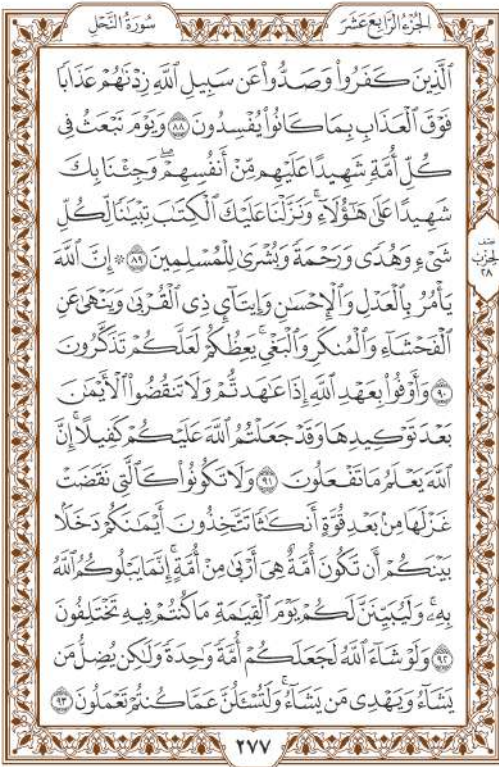 سُورَةُ النَّحۡلِ
الجُزْءُ الرَّابِعَ عَشَرَ
ٱلَّذِينَ كَفَرُواْ وَصَدُّواْ عَن سَبِيلِ ٱللَّهِ زِدۡنَٰهُمۡ عَذَابٗا
فَوۡقَ ٱلۡعَذَابِ بِمَا كَانُواْ يُفۡسِدُونَ ٨٨ وَيَوۡمَ نَبۡعَثُ فِي
كُلِّ أُمَّةٖ شَهِيدًا عَلَيۡهِم مِّنۡ أَنفُسِهِمۡۖ وَجِئۡنَا بِكَ
شَهِيدًا عَلَىٰ هَٰٓؤُلَآءِۚ وَنَزَّلۡنَا عَلَيۡكَ ٱلۡكِتَٰبَ تِبۡيَٰنٗا لِّكُلِّ
شَيۡءٖ وَهُدٗى وَرَحۡمَةٗ وَبُشۡرَىٰ لِلۡمُسۡلِمِينَ ٨٩ ۞ إِنَّ ٱللَّهَ
نصف
الحزب
٢٨
يَأۡمُرُ بِٱلۡعَدۡلِ وَٱلۡإِحۡسَٰنِ وَإِيتَآيِٕ ذِي ٱلۡقُرۡبَىٰ وَيَنۡهَىٰ عَنِ
ٱلۡفَحۡشَآءِ وَٱلۡمُنكَرِ وَٱلۡبَغۡيِۚ يَعِظُكُمۡ لَعَلَّكُمۡ تَذَكَّرُونَ
٩٠ وَأَوۡفُواْ بِعَهۡدِ ٱللَّهِ إِذَا عَٰهَدتُّمۡ وَلَا تَنقُضُواْ ٱلۡأَيۡمَٰنَ
بَعۡدَ تَوۡكِيدِهَا وَقَدۡ جَعَلۡتُمُ ٱللَّهَ عَلَيۡكُمۡ كَفِيلًاۚ إِنَّ
ٱللَّهَ يَعۡلَمُ مَا تَفۡعَلُونَ ٩١ وَلَا تَكُونُواْ كَٱلَّتِي نَقَضَتۡ
غَزۡلَهَا مِنۢ بَعۡدِ قُوَّةٍ أَنكَٰثٗا تَتَّخِذُونَ أَيۡمَٰنَكُمۡ دَخَلَۢا
بَيۡنَكُمۡ أَن تَكُونَ أُمَّةٌ هِيَ أَرۡبَىٰ مِنۡ أُمَّةٍۚ إِنَّمَا يَبۡلُوكُمُ ٱللَّهُ
بِهِۦۚ وَلَيُبَيِّنَنَّ لَكُمۡ يَوۡمَ ٱلۡقِيَٰمَةِ مَا كُنتُمۡ فِيهِ تَخۡتَلِفُونَ
٩٢ وَلَوۡ شَآءَ ٱللَّهُ لَجَعَلَكُمۡ أُمَّةٗ وَٰحِدَةٗ وَلَٰكِن يُضِلُّ مَن
يَشَآءُ وَيَهۡدِي مَن يَشَآءُۚ وَلَتُسۡـَٔلُنَّ عَمَّا كُنتُمۡ تَعۡمَلُونَ ٩٣
٢٧٧